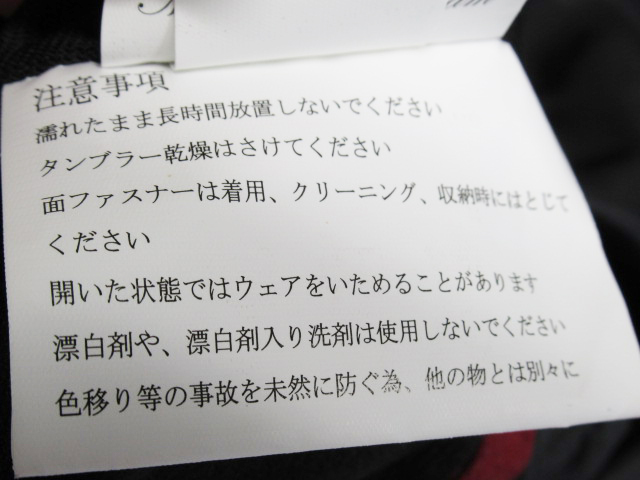 注意事項
濡れたまま長時間放置しないでください
タンブラー乾燥はさけてください
面ファスナーは着用、クリーニング、収納時にはとじて
ください
開いた状態ではウェアをいためることがあります
漂白剤や、漂白剤入り洗剤は使用しないでください
色移り等の事故を未然に防ぐ為、他の物とは別々に